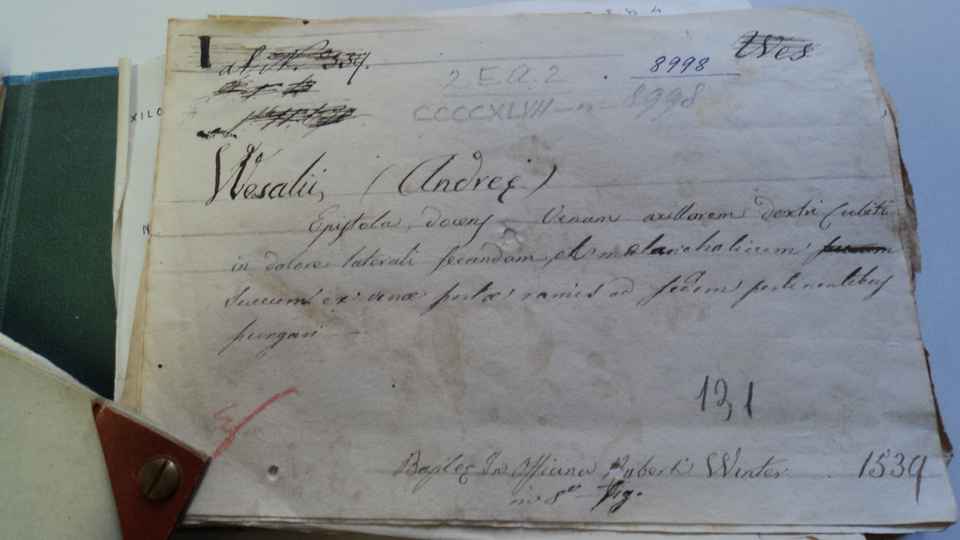 8998 Wes
2.E.A.2
CCCCXLVII — n — 8998
XILO
Wesalii, (Andreę)
Epistola, docens Venam axillarem dextri Cubiti
in dolore laterali secandam, et melancholicum
succum ex venæ portæ ramis ad sedem pertinentibus
purgari —
13,1
Basileę In Officina Ruberti Winter . 1539
in 8º fig.